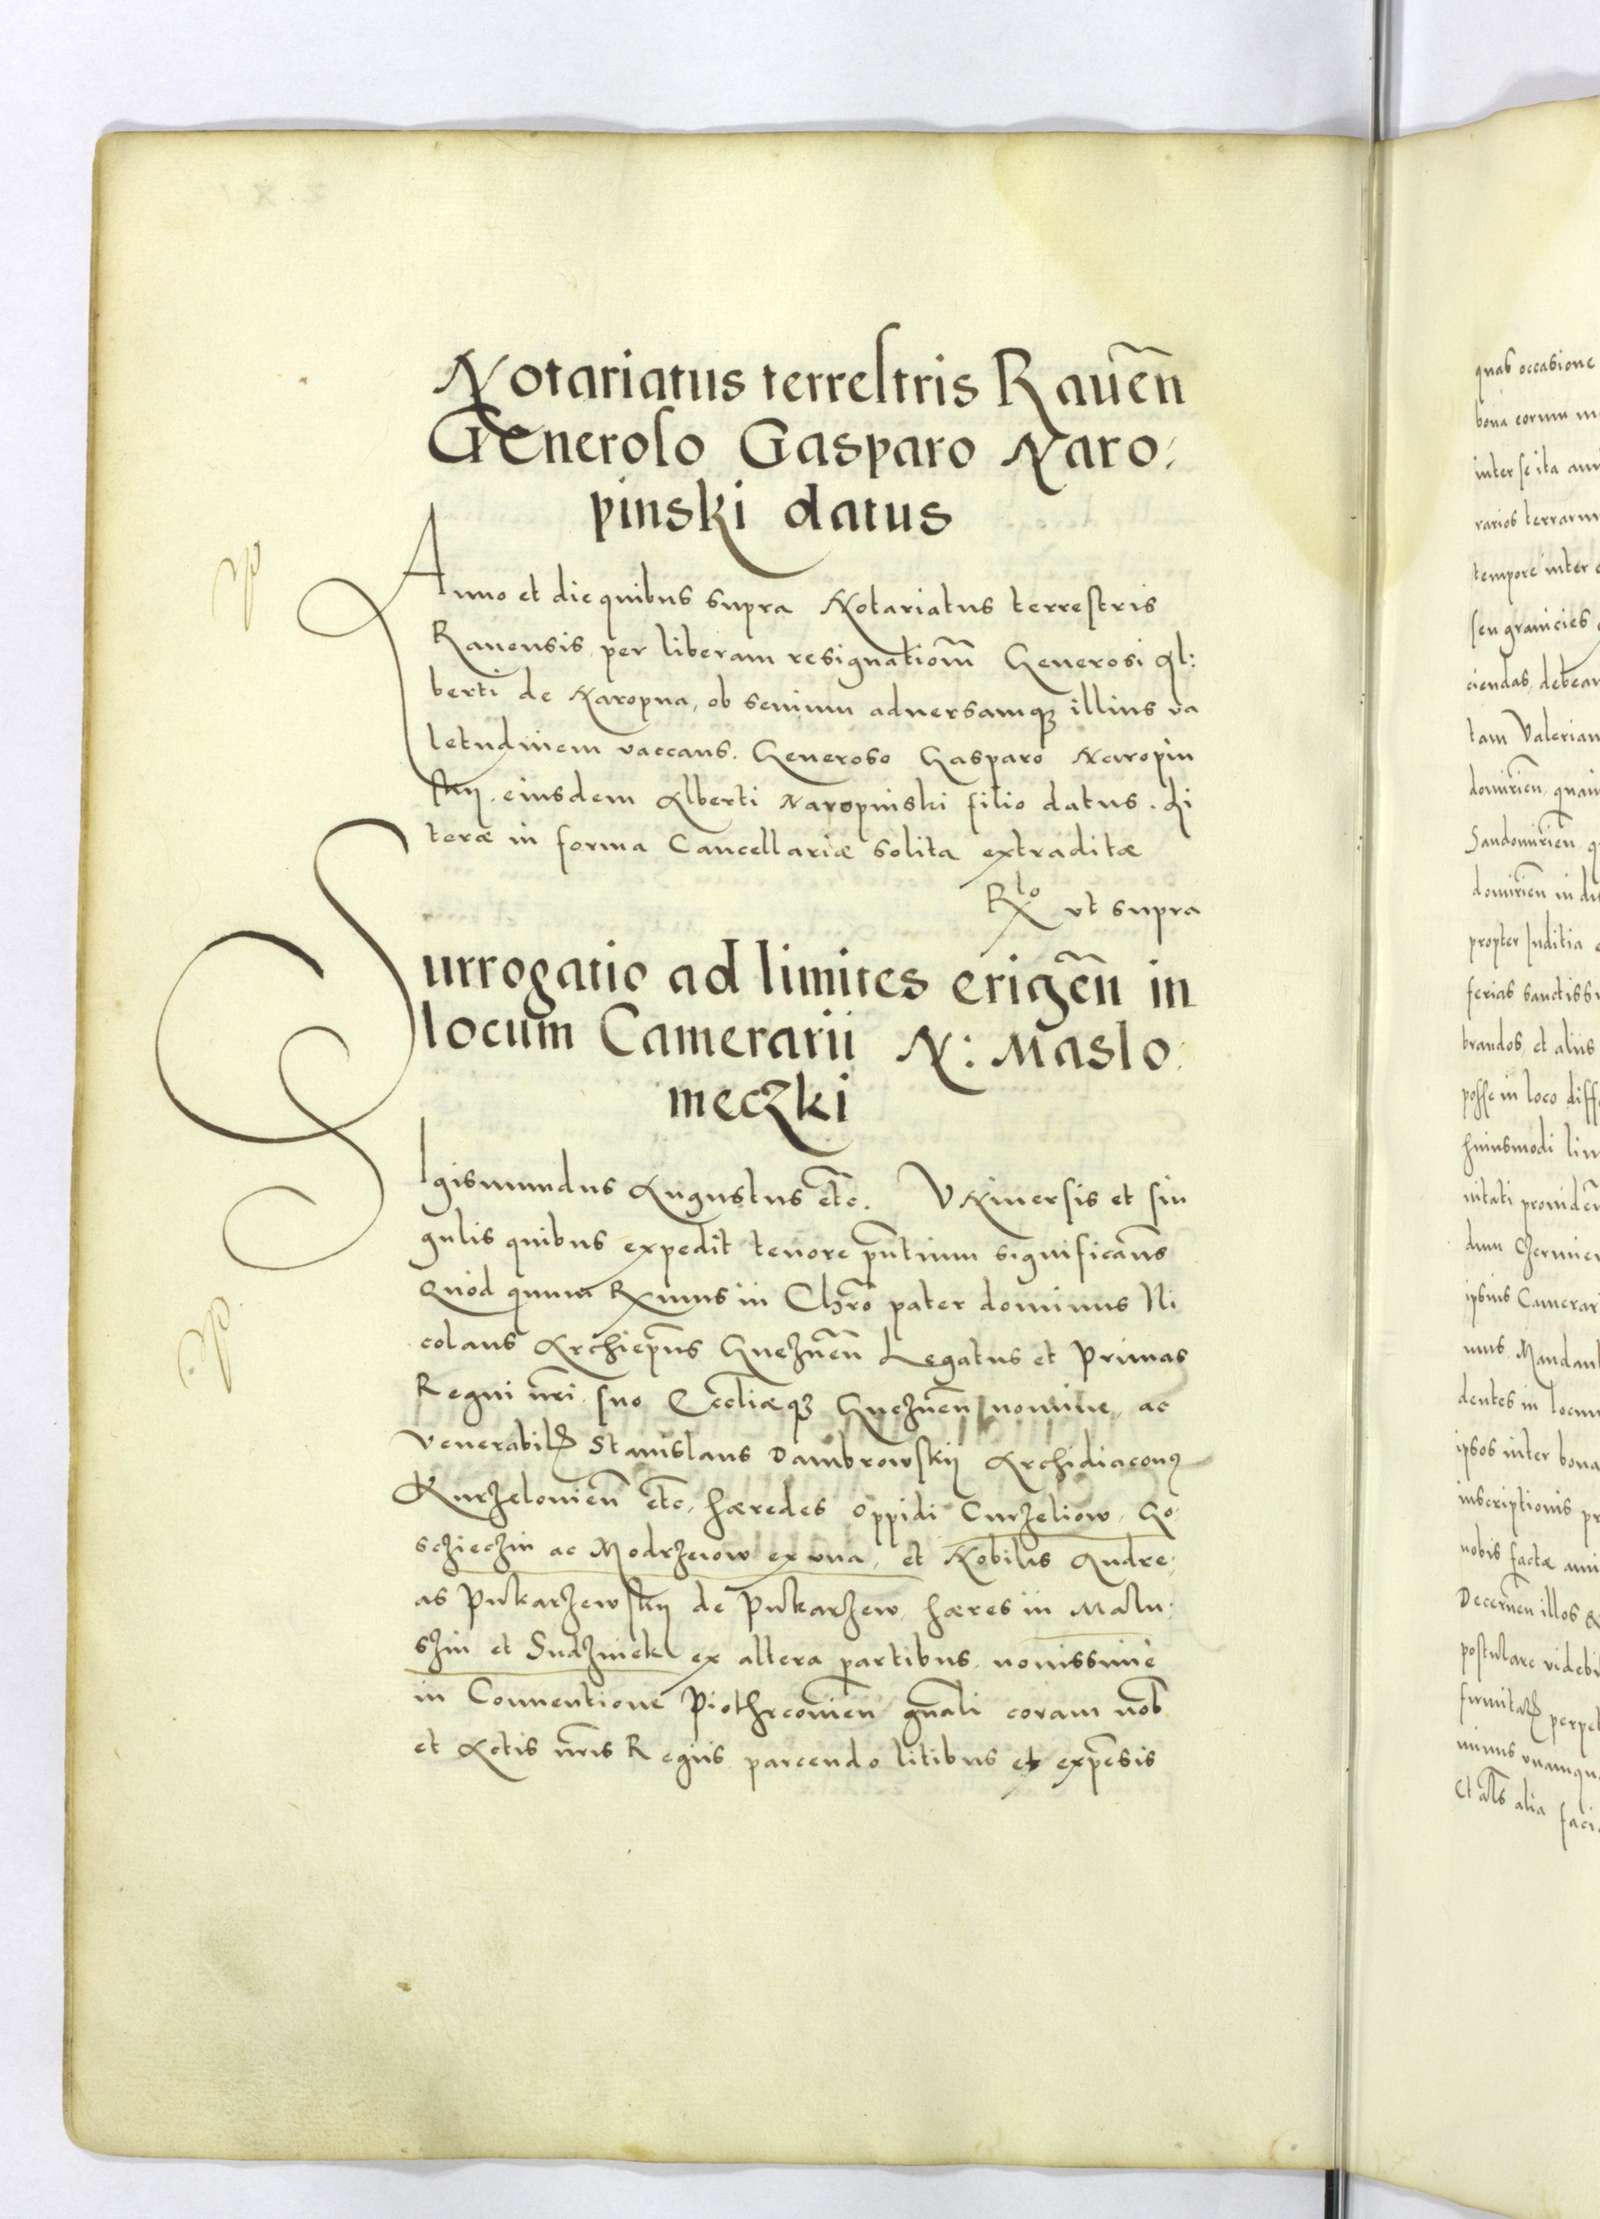 Notariatus terrestris Raueñ
Generoso Gasparo Naro:
pinski datus
Anno et die quibus supra Notariatus terrestris
Rauensis, per liberam resignationem Generosi Al:
berti de Naropna, ob senium aduersamq₃ illius va
letudinem vaccans. Generoso Gasparo Naropin
skij, eiusdem Alberti Naropinski filio datus. Li
teræ in forma Cancellariæ solita extraditæ
Rlo vt supra
Surrogatio ad limites erigeñ in
locum Camerarii N: Maslo:
meczki
Sigismundus Augustus etc. Vniuersis et sin
gulis quibus expedit tenore pñtium significam̃s
Quod quum Rxmus in Chrõ pater dominus Ni
colaus Archiep̃us Gnezneñ Legatus et Primas
Regni nr̃i, suo Eccl̃iæq₃ Gnezneñ nomine, ac
Venerabil̃ Stanislaus Dambrowskij Archidiaconꝰ
Kurzelouieñ etc, hæredes oppidi Curzeliow, Go
scziechin ac Modrzewow ex vna, et Nobilis Andre:
as Pukarzewskij de Pukarzew, hæres in Malu:
szin et Sudzinek ex altera partibus, nouissime
in Conuentione Piothrcouieñ gñali coram nob̃
et Actis nr̃is Regiis, parcendo litibus et expẽsis
quas occasione
bona eorum
inter se ita
rarios terrarum
tempore inter
seu granicies
ciendas, debean
tam Valerian
domirieñ, quam
Sandomirieñ
domirieñ in
propter Iuditia
ferias sanctiss
brandos, et aliis
posse in loco diff
huiusmodi lim
nitati prouideñ
dum
ipsius Camerar
mus. Mandan
dentes in locum
ipsos inter bona
inscriptionis pr
nobis factæ
Decerneñ illos
postulare videbi
firmitatẽ perpet
nimus vnamqu
Et al̃s alia faci